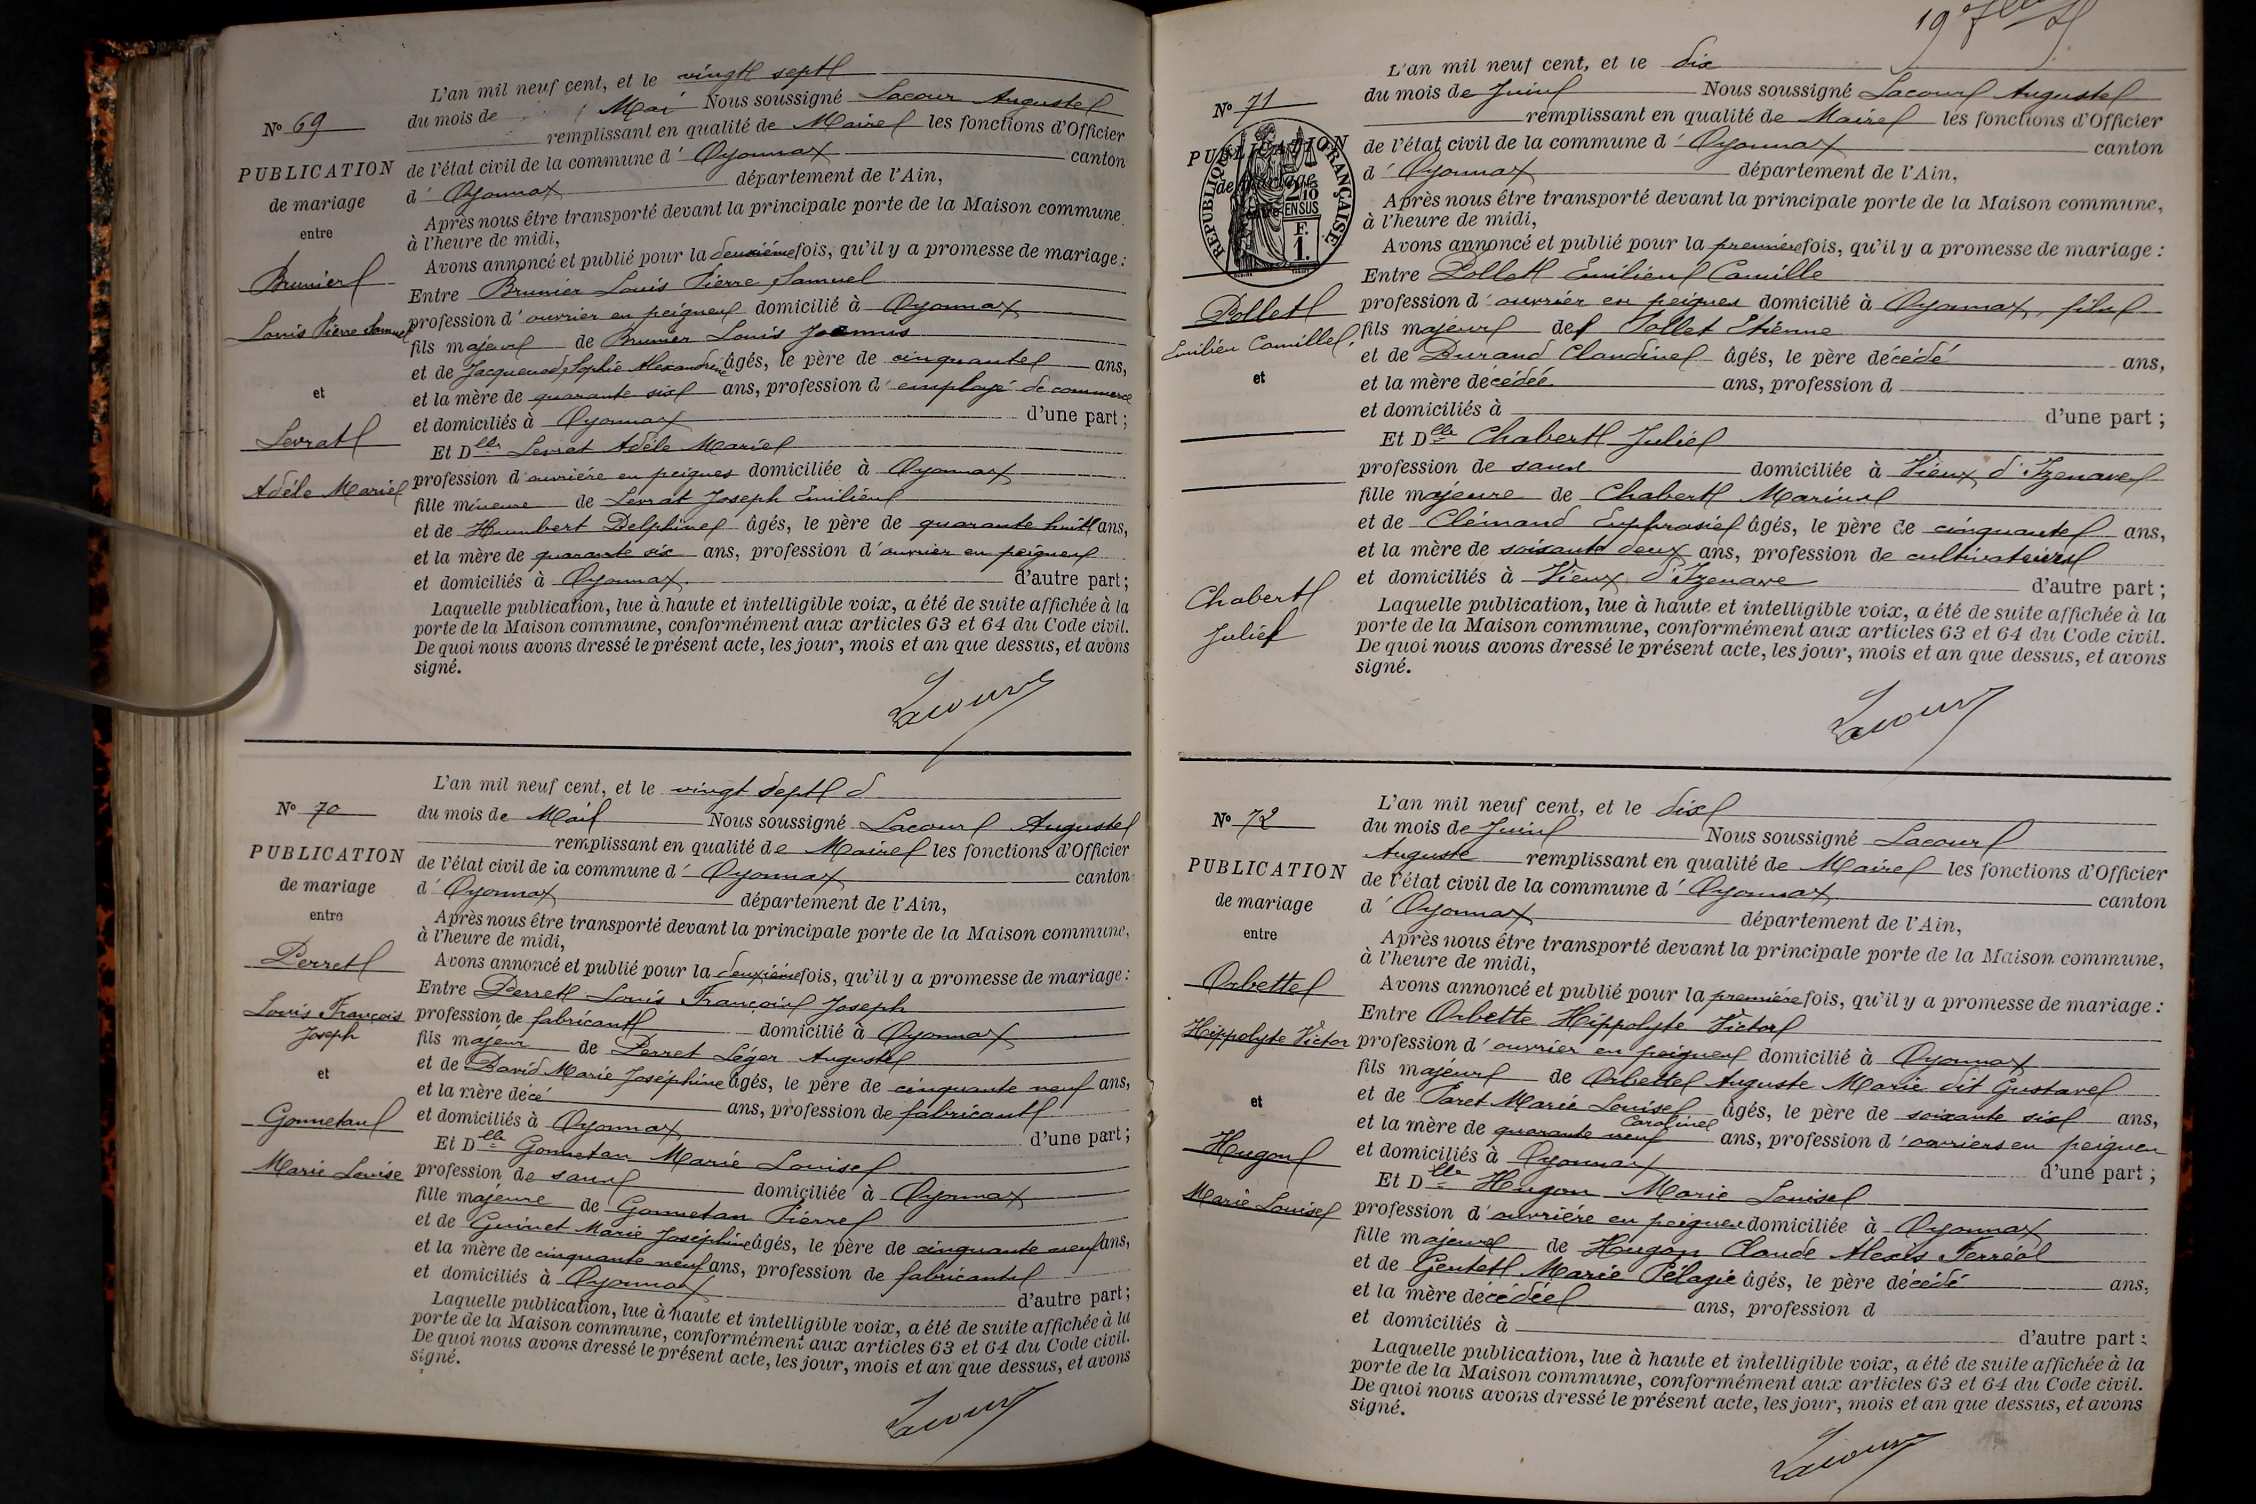 L'an mil neuf cent, et le vingt sept
du mois de Mai Nous soussigné Lacour Auguste
remplissant en qualité de Maire les fonctions d'Officier
de l'état civil de la commune d' Oyonnax canton
d' Oyonnax département de l'Ain,
Après nous être transporté devant la principale porte de la Maison commune
à l'heure de midi,
Avons annoncé et publié pour la deuxième fois, qu'il y a promesse de mariage :
Entre Brunier Louis Pierre Samuel
profession d' ouvrier en peignes domicilié à Oyonnax
fils majeur de Brunier Louis Joannus
et de Jacquenod, Sophie Alexandrine âgés, le père de cinquante ans,
et la mère de quarante six ans, profession d' employé de commerce
et domiciliés à Oyonnax d'une part ;
Et Dlle Levrat Adèle Marie
profession d' ouvrière en peignes domiciliée à Oyonnax
fille mineure de Levrat Joseph Emilien
et de Humbert Delphine âgés, le père de quarante huit ans,
et la mère de quarante six ans, profession d' ouvrier en peignes
et domiciliés à Oyonnax d'autre part ;
Laquelle publication, lue à haute et intelligible voix, a été de suite affichée à la
porte de la Maison commune, conformément aux articles 63 et 64 du Code civil.
De quoi nous avons dressé le présent acte, les jour, mois et an que dessus, et avons
signé.
Lacour
No 69
PUBLICATION
de mariage
entre
Brunier
Louis Pierre Samuel
et
Levrat
Adèle Marie
L'an mil neuf cent, et le vingt sept
du mois de Mai Nous soussigné Lacour Auguste
remplissant en qualité de Maire les fonctions d'Officier
de l'état civil de la commune d' Oyonnax canton
d' Oyonnax département de l'Ain,
Après nous être transporté devant la principale porte de la Maison commune,
à l'heure de midi,
Avons annoncé et publié pour la deuxième fois, qu'il y a promesse de mariage :
Entre Perret Louis François Joseph
profession de fabricant domicilié à Oyonnax
fils majeur de Perret Léger Auguste
et de David Marie Joséphine âgés, le père de cinquante neuf ans,
et la mère décé ans, profession de fabricant
et domiciliés à Oyonnax d'une part ;
Et Dlle Gonnetan Marie Louise
profession de sans domiciliée à Oyonnax
fille majeure de Gonnetan Pierre
et de Guinet Marie Joséphine âgés, le père de cinquante neuf ans,
et la mère de cinquante neuf ans, profession de fabricants
et domiciliés à Oyonnax d'autre part ;
Laquelle publication, lue à haute et intelligible voix, a été de suite affichée à la
porte de la Maison commune, conformément aux articles 63 et 64 du Code civil.
De quoi nous avons dressé le présent acte, les jour, mois et an que dessus, et avons
signé.
Lacour
No 70
PUBLICATION
de mariage
entre
Perret
Louis François
Joseph
et
Gonnetan
Marie Louise
L'an mil neuf cent, et le dix
du mois de Juin Nous soussigné Lacour Auguste
remplissant en qualité de Maire les fonctions d'Officier
de l'état civil de la commune d' Oyonnax canton
d' Oyonnax département de l'Ain,
Après nous être transporté devant la principale porte de la Maison commune,
à l'heure de midi,
Avons annoncé et publié pour la première fois, qu'il y a promesse de mariage :
Entre Pollet Emilien Camille
profession d' ouvrier en peignes domicilié à Oyonnax, fils
fils majeur de Pollet Etienne
et de Durand Claudine âgés, le père décédé ans,
et la mère décédée ans, profession d
et domiciliés à d'une part ;
Et Dlle Chabert Julie
profession de sans domiciliée à Vieux d'Izenave
fille majeure de Chabert Marius
et de Clémand Euphrasie âgés, le père de cinquante ans,
et la mère de soixante deux ans, profession de cultivateurs
et domiciliés à Vieux d'Izenave d'autre part ;
Laquelle publication, lue à haute et intelligible voix, a été de suite affichée à la
porte de la Maison commune, conformément aux articles 63 et 64 du Code civil.
De quoi nous avons dressé le présent acte, les jour, mois et an que dessus, et avons
signé.
Lacour
No 71
PUBLICATION
de mariage
RÉPUBLIQUE FRANÇAISE
2/10 EN SUS
F.
1.
Pollet
Emilien Camille
et
Chabert
Julie
L'an mil neuf cent, et le dix
du mois de Juin Nous soussigné Lacour
Auguste remplissant en qualité de Maire les fonctions d'Officier
de l'état civil de la commune d' Oyonnax canton
d' Oyonnax département de l'Ain,
Après nous être transporté devant la principale porte de la Maison commune,
à l'heure de midi,
Avons annoncé et publié pour la première fois, qu'il y a promesse de mariage :
Entre Orbette Hippolyte Victor
profession d' ouvrier en peignes domicilié à Oyonnax
fils majeur de Orbette Auguste Marie dit Gustave
et de Paret Marie Louise Caroline âgés, le père de soixante six ans,
et la mère de quarante neuf ans, profession d' ouvriers en peignes
et domiciliés à Oyonnax d'une part ;
Et Dlle Hugon Marie Louise
profession d' ouvrière en peignes domiciliée à Oyonnax
fille majeure de Hugon Claude Alexis Ferréol
et de Gentet Marie Pélagie âgés, le père décédé ans,
et la mère décédée ans, profession d
et domiciliés à d'autre part ;
Laquelle publication, lue à haute et intelligible voix, a été de suite affichée à la
porte de la Maison commune, conformément aux articles 63 et 64 du Code civil.
De quoi nous avons dressé le présent acte, les jour, mois et an que dessus, et avons
signé.
Lacour
No 72
PUBLICATION
de mariage
entre
Orbette
Hippolyte Victor
et
Hugon
Marie Louise